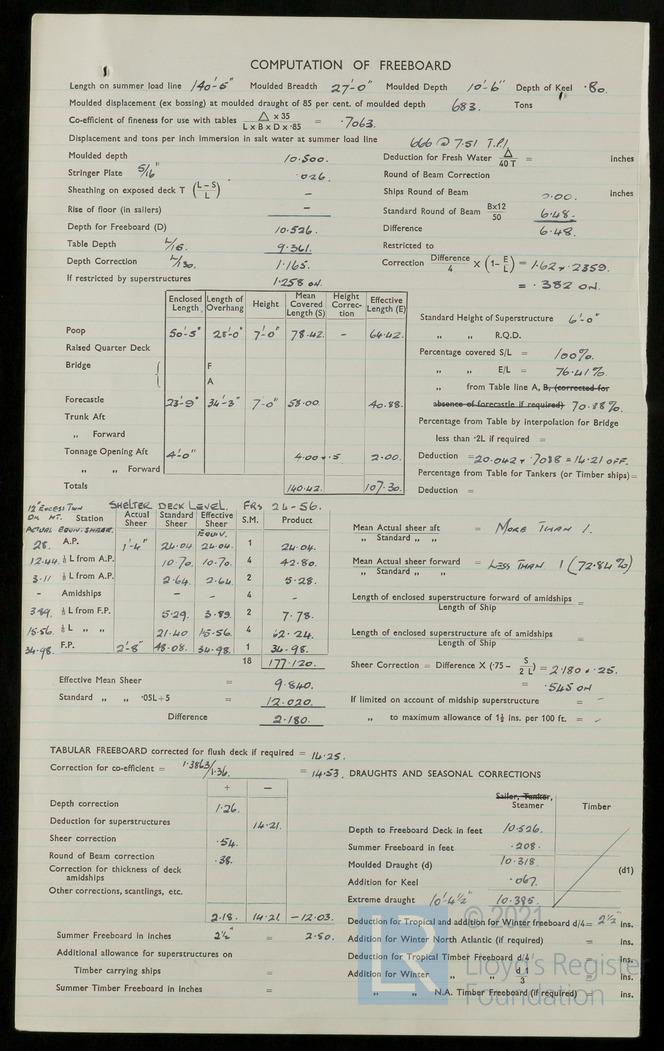 COMPUTATION OF FREEBOARD
Length on summer load line 140'-5" Moulded Breadth 27'-0" Moulded Depth 10'-6" Depth of Keel ·80
Moulded displacement (ex bossing) at moulded draught of 85 per cent. of moulded depth 683. Tons
Co-efficient of fineness for use with tables △ x 35 / L x B x D x ·85 = ·7063.
Displacement and tons per inch immersion in salt water at summer load line 666 @ 7.51 T.P.I.
Moulded depth 10.500.
Stringer Plate 5/16" ·026.
Sheathing on exposed deck T (L–S / L) –
Rise of floor (in sailers) –
Depth for Freeboard (D) 10.526.
Table Depth L/15. 9.361.
Depth Correction L/130. 1.165.
If restricted by superstructures 1.258 on.
Deduction for Fresh Water △ / 40 T = inches
Round of Beam Correction
Ships Round of Beam 0.00. inches
Standard Round of Beam Bx12 / 50 6.48.
Difference 6.48.
Restricted to
Correction Difference / 4 X (1– E / L) = 1.62 x .2359.
= .382 on.
Enclosed Length Length of Overhang Height Mean Covered Length (S) Height Correction Effective Length (E)
Poop 50'-5" 28'-0" 7'-0" 78.42. – 64.42.
Raised Quarter Deck
Bridge F
A
Forecastle 23'-9" 34'-3" 7'-0" 58.00. 40.88.
Trunk Aft
„ Forward
Tonnage Opening Aft 4'-0" 4.00 x .5 2.00.
„ „ Forward
Totals 140.42. 107.30.
Standard Height of Superstructure 6'-0"
„ „ R.Q.D.
Percentage covered S/L = 100%.
„ „ E/L = 76.41%.
„ from Table line A, B, (corrected for
absence of forecastle if required) 70.88%.
Percentage from Table by interpolation for Bridge
less than ·2L if required =
Deduction = 20.042 x .7088 = 14.21 OFF.
Percentage from Table for Tankers (or Timber ships) =
Deduction =
SHELTER DECK LEVEL. FRS 24-56.
Station Actual Sheer Standard Sheer Effective Sheer S.M. Product
ACTUAL EQUIV. SHEER. EQUIV.
28. A.P. 1'-4" 24.04 24.04. 1 24.04.
12.44. ⅙ L from A.P. 10.70. 10.70. 4 42.80.
3.11 ⅓ L from A.P. 2.64. 2.64. 2 5.28.
– Amidships – – 4 –
3.89. ⅓ L from F.P. 5.29. 3.89. 2 7.78.
15.56. ⅙ L „ „ 21.40 15.56. 4 62.24.
34.98. F.P. 2'-8" 48.08. 34.98. 1 34.98.
18 177.120.
Effective Mean Sheer = 9.840.
Standard „ „ ·05L+5 = 12.020.
Difference 2.180.
Mean Actual sheer aft / „ Standard „ „ = MORE THAN 1.
Mean Actual sheer forward / „ Standard „ „ = LESS THAN 1 (72.84%)
Length of enclosed superstructure forward of amidships / Length of Ship =
Length of enclosed superstructure aft of amidships / Length of Ship =
Sheer Correction = Difference X (·75 – S / 2 L) = 2.180 x .25.
= .545 on
If limited on account of midship superstructure = –
„ to maximum allowance of 1½ ins. per 100 ft. = –
TABULAR FREEBOARD corrected for flush deck if required = 14.25.
Correction for co-efficient = 1.3863/1.36. = 14.53.
+ –
Depth correction 1.26.
Deduction for superstructures 14.21.
Sheer correction .54.
Round of Beam correction .38.
Correction for thickness of deck
amidships
Other corrections, scantlings, etc.
2.18. 14.21 –12.03.
Summer Freeboard in inches 2½" = 2.50.
Additional allowance for superstructures on
Timber carrying ships =
Summer Timber Freeboard in inches =
DRAUGHTS AND SEASONAL CORRECTIONS
Sailer, Tanker,
Steamer Timber
Depth to Freeboard Deck in feet 10.526.
Summer Freeboard in feet .208.
Moulded Draught (d) 10.318 (d1)
Addition for Keel .067.
Extreme draught 10'-4½" 10.395.
Deduction for Tropical and addition for Winter freeboard d/4= 2½" ins.
Addition for Winter North Atlantic (if required) = ins.
Deduction for Tropical Timber Freeboard d/4 ins.
Addition for Winter „ „ d 1 / 3 = ins.
„ „ N.A. Timber Freeboard (if required) = ins.
© 2021
LR
Lloyd's Register
Foundation